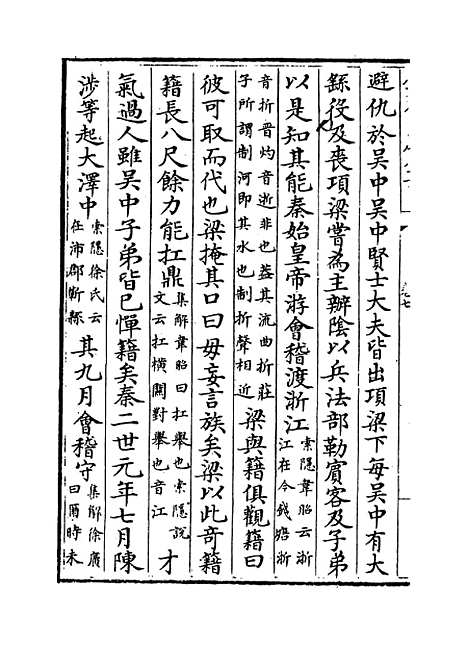 避仇於吳中吳中賢士大夫皆出項梁下每吳中有大
繇役及喪項梁嘗為主辦陰以兵法部勒賓客及子弟
以是知其能秦始皇帝游會稽渡浙江索隱韋昭云浙江在今錢塘浙
音折晋灼音逝非也葢其流曲折莊子所謂制河即其水也制折聲相近梁與籍俱觀籍曰
彼可取而代也梁掩其口曰毋妄言族矣梁以此奇籍
籍長八尺餘力能扛鼎集解韋昭曰扛舉也索隱說文云扛橫關對舉也音江才
氣過人雖吳中子弟皆已憚籍矣秦二世元年七月陳
涉等起大澤中索隱徐氏云在沛郡蘄縣其九月會稽守集解徐廣曰爾時未